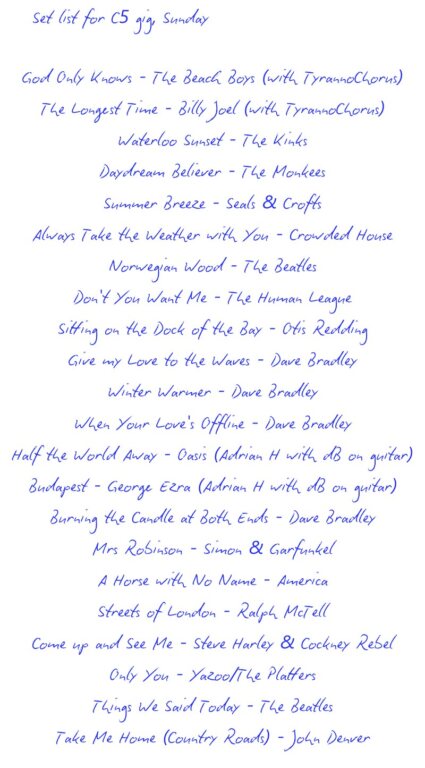 Set list for C5 gig, Sunday
God Only Knows - The Beach Boys (with TyrannoChorus)
The Longest Time - Billy Joel (with TyrannoChorus)
Waterloo Sunset - The Kinks
Daydream Believer - The Monkees
Summer Breeze - Seals & Crofts
Always Take the Weather with You - Crowded House
Norwegian Wood - The Beatles
Don't You Want Me - The Human League
Sitting on the Dock of the Bay - Otis Redding
Give my Love to the Waves - Dave Bradley
Winter Warmer - Dave Bradley
When Your Love's Offline - Dave Bradley
Half the World Away - Oasis (Adrian H with dB on guitar)
Budapest - George Ezra (Adrian H with dB on guitar)
Burning the Candle at Both Ends - Dave Bradley
Mrs Robinson - Simon & Garfunkel
A Horse with No Name - America
Streets of London - Ralph McTell
Come up and See Me - Steve Harley & Cockney Rebel
Only You - Yazoo/The Platters
Things We Said Today - The Beatles
Take Me Home (Country Roads) - John Denver